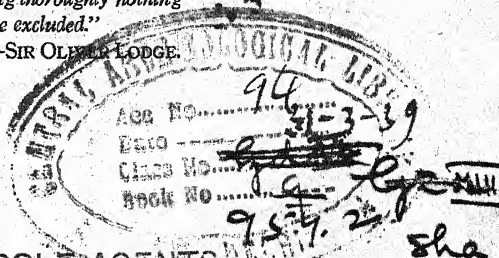 ng thoroughly nothing
e excluded."
-SIR OLIVER LODGE.
CENTRAL ARCHAEOLOGICAL LIB
Acc No. 94
Date 31-3-39
Class No.
Book No.
954.2
Sha
SOLE AGENTS